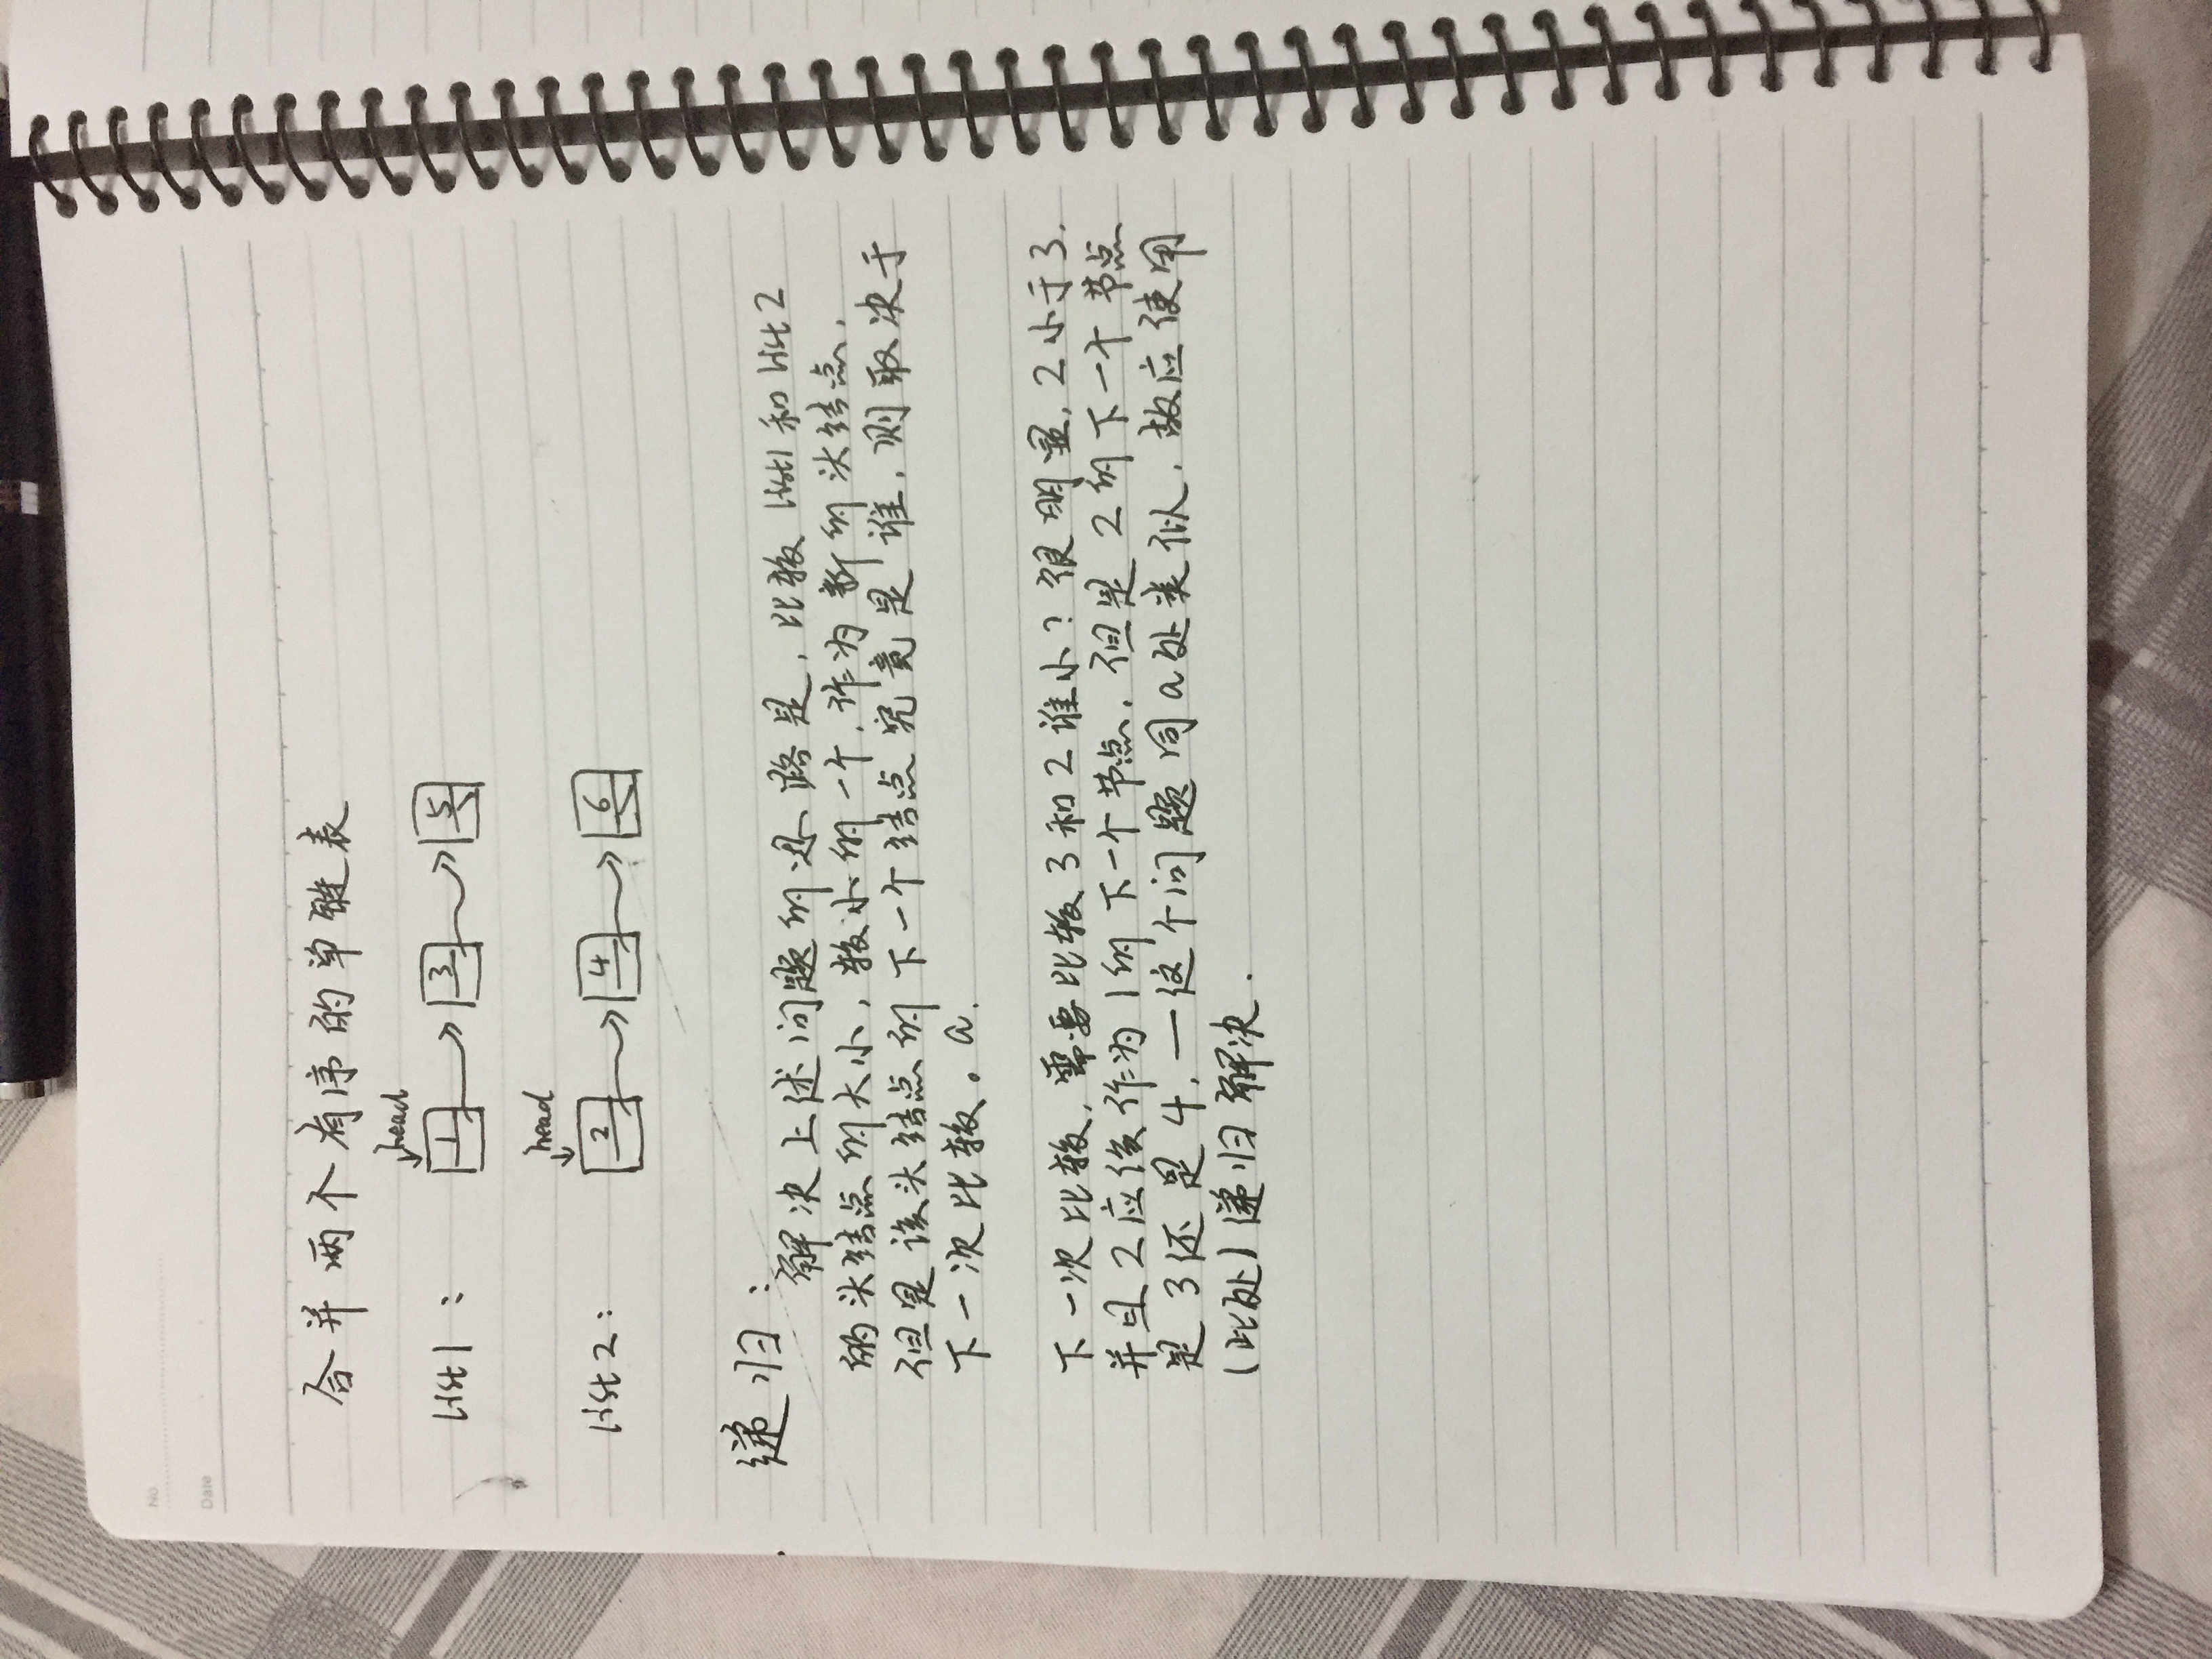 No
Date
合并两个有序的单链表
head
list1: 1 3 5
head
list2: 2 4 6
递归:
解决上述问题的思路是,比较list1和list2
的头结点的大小,较小的一个,作为新的头结点,
但是该头结点的下一个结点究竟是谁,则取决于
下一次比较。a.
下一次比较,需要比较3和2谁小?很明显,2小于3.
并且2应该作为1的下一个节点,但是2的下一个节点
是3还是4,一这个问题同a处类似,故应使用
(此处)递归解决.